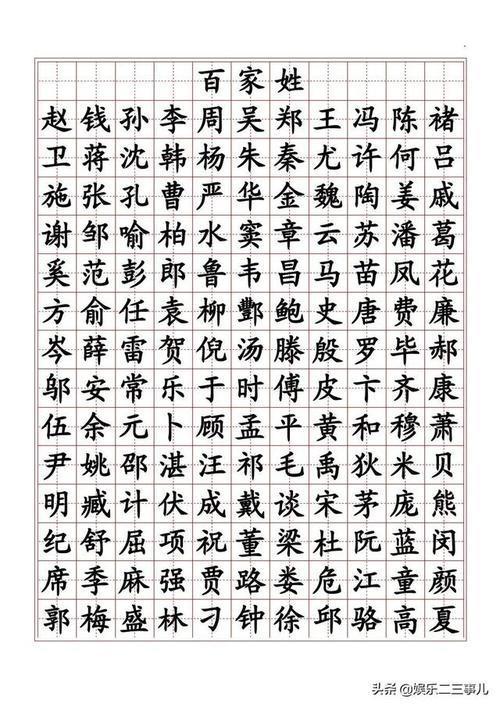 百家姓
赵钱孙李周吴郑王冯陈褚
卫蒋沈韩杨朱秦尤许何吕
施张孔曹严华金魏陶姜戚
谢邹喻柏水窦章云苏潘葛
奚范彭郎鲁韦昌马苗凤花
方俞任袁柳酆鲍史唐费廉
岑薛雷贺倪汤滕殷罗毕郝
邬安常乐于时傅皮卞齐康
伍余元卜顾孟平黄和穆萧
尹姚邵湛汪祁毛禹狄米贝
明臧计伏成戴谈宋茅庞熊
纪舒屈项祝董梁杜阮蓝闵
席季麻强贾路娄危江童颜
郭梅盛林刁钟徐邱骆高夏
头条@娱乐二三事儿